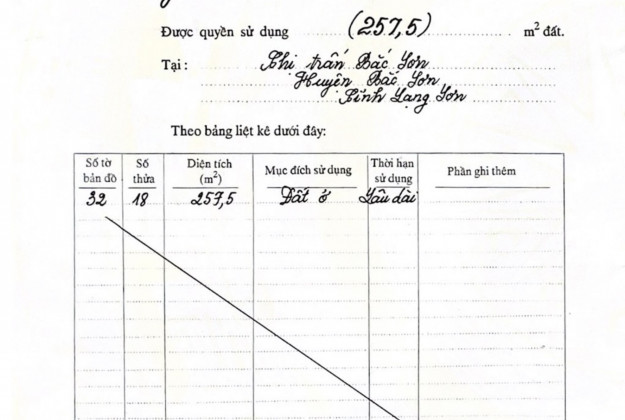 Được quyền sử dụng (257,5) m² đất.
Tại: Thị trấn Bắc Sơn
Huyện Bắc Sơn
Tỉnh Lạng Sơn
Theo bảng liệt kê dưới đây:
Số tờ bản đồ Số thửa Diện tích (m²) Mục đích sử dụng Thời hạn sử dụng Phần ghi thêm
32 18 257,5 Đất ở Lâu dài